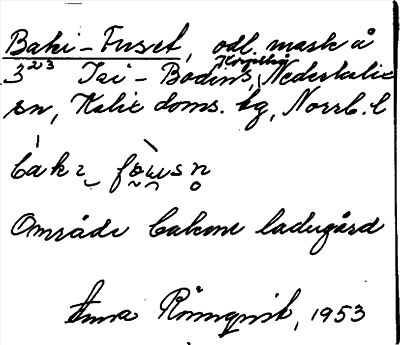 Baki-Fuset, odl. mark å
3²⁻³ Tai-Bodins, Nederkalix
sn, Kalix doms. hg, Norrb. l
Område bakom ladugård
Anna Rönnqvist, 1953